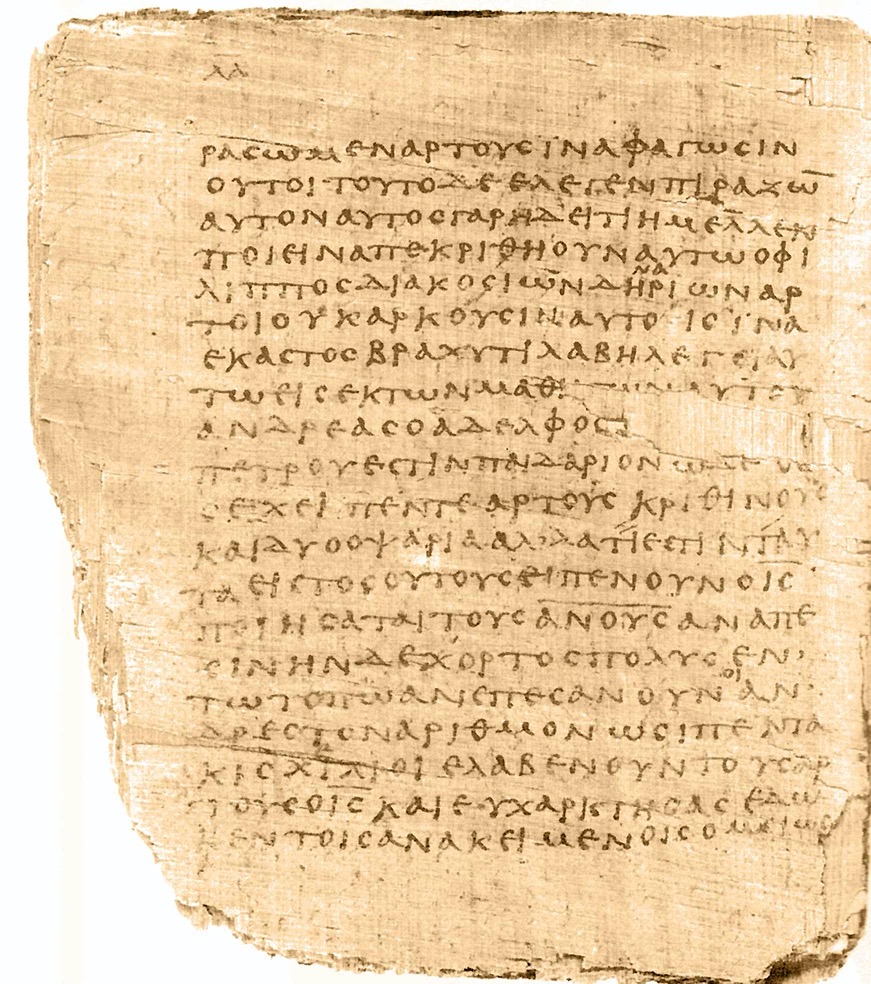 λα
ραсωμεναρτουсιναφαγωсιν
ουτοιτουτοδεελεγενπιραζω̅
αυτοναυτοсγαρηδειτιημελλεν
ποιειναπεκριθηουναυτωοφι
λιπποсδιακοсιωνδηναριωναρ
τοιουκαρκουсιναυτοιсινα
εκαсτοсβραχυτιλαβηλεγειαυ
τωειсεκτωνμαθητωναυτου
ανδρεαсοαδελφοсс
πετρουεсτινπαιδαριονωδε
сεχειπεντεαρτουсκριθινουс
καιδυοοψαριααλλατιεсτινταυ
ταειсτοсουτουсειπενουνοι̅с̅
ποιηсαταιτουсα̅ν̅ο̅υ̅с̅αναπε
сινηνδεχορτοсπολυсεν
τωτοπωανεπεсανουνοιαν
δρεсτοναριθμονωсιπεντα
κιсχιλιοιελαβενουντουсαρ
τουсοι̅с̅καιευχαριсτηсαсεδω
κεντοιсανακειμενοιсομοιωс